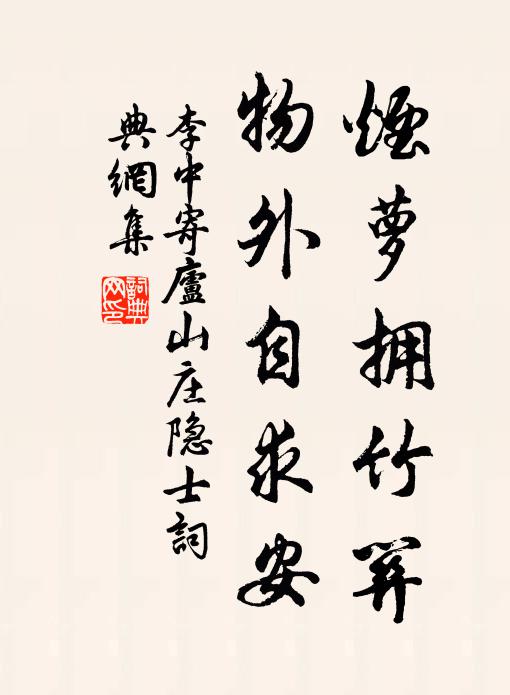 煙萝拥竹關
物外自求安
李中寄廬山庄隐士詞
典網集
詞典
网印